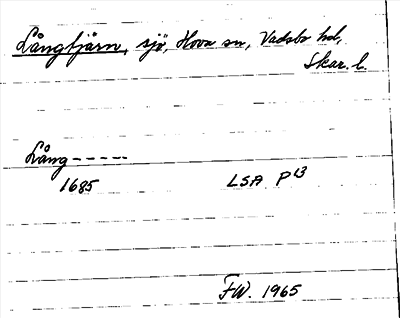 Långtjärn, sjö, Hova sn, Vadsbo hd,
Skar. l.
Lång-----
1685 LSA P13
FW. 1965